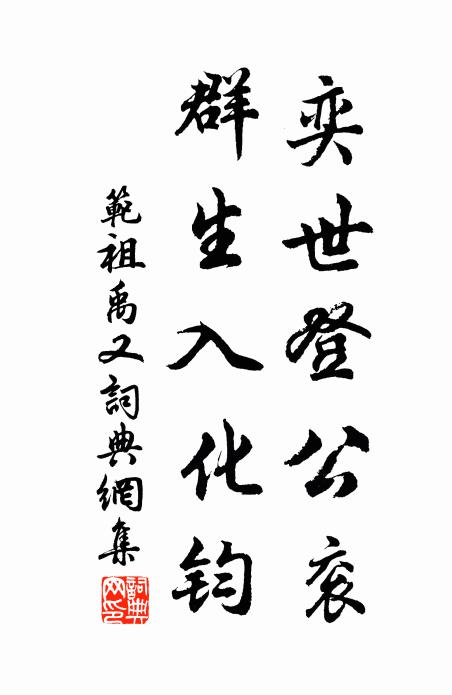 奕世登公衮
群生入化钧
範祖禹又詞典網集
詞典網印